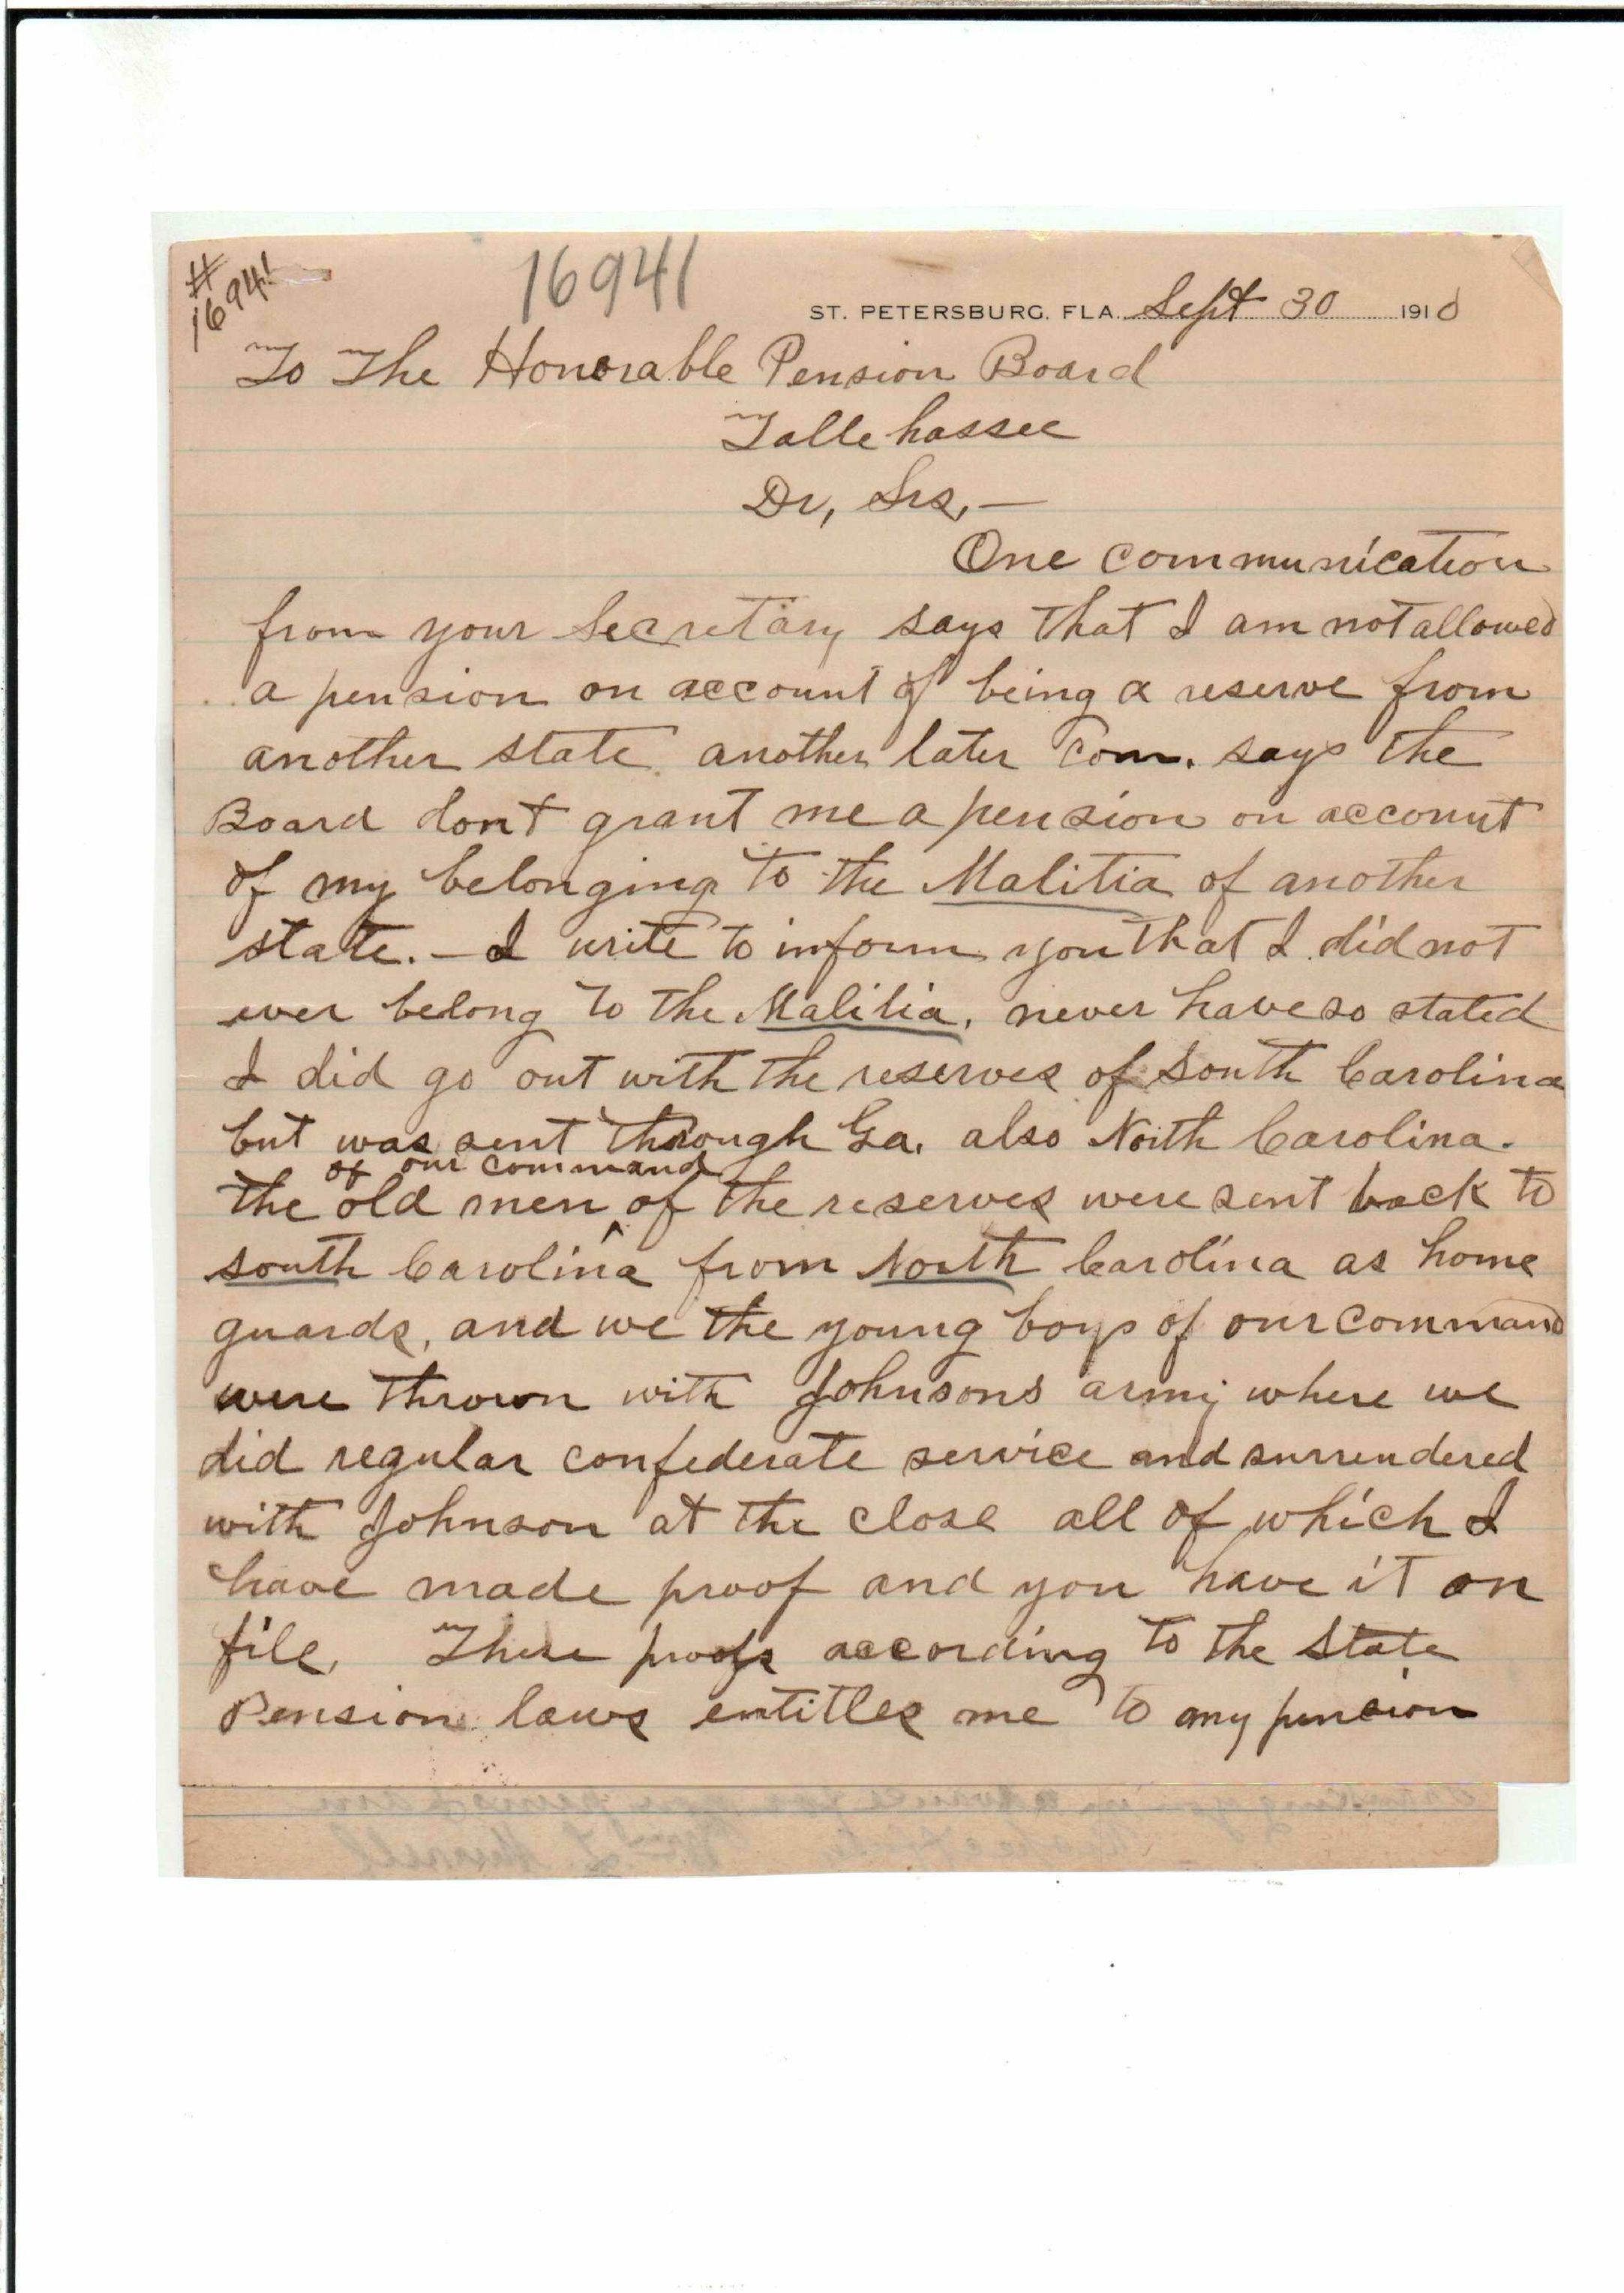 # 16941
16941
ST. PETERSBURG. FLA. Sept 30 1910
To The Honorable Pension Board
Tallehassee
Dr, Srs, —
One communication
from your Secretary says that I am not allowed
a pension on account of being a reserve from
another state. another later Com. says the
Board dont grant me a pension on account
of my belonging to the Malitia of another
state. — I write to inform you that I did not
ever belong to the Malitia, never have so stated
I did go out with the reserves of South Carolina
but was sent through Ga. also North Carolina.
of our command
the old men ^ of the reserves were sent back to
south Carolina from North Carolina as home
guards, and we the young boys of our command
were thrown with Johnsons army where we
did regular confederate service and surrendered
with Johnson at the close all of which I
have made proof and you have it on
file. These proofs according to the State
Pension laws entitles me to my pension